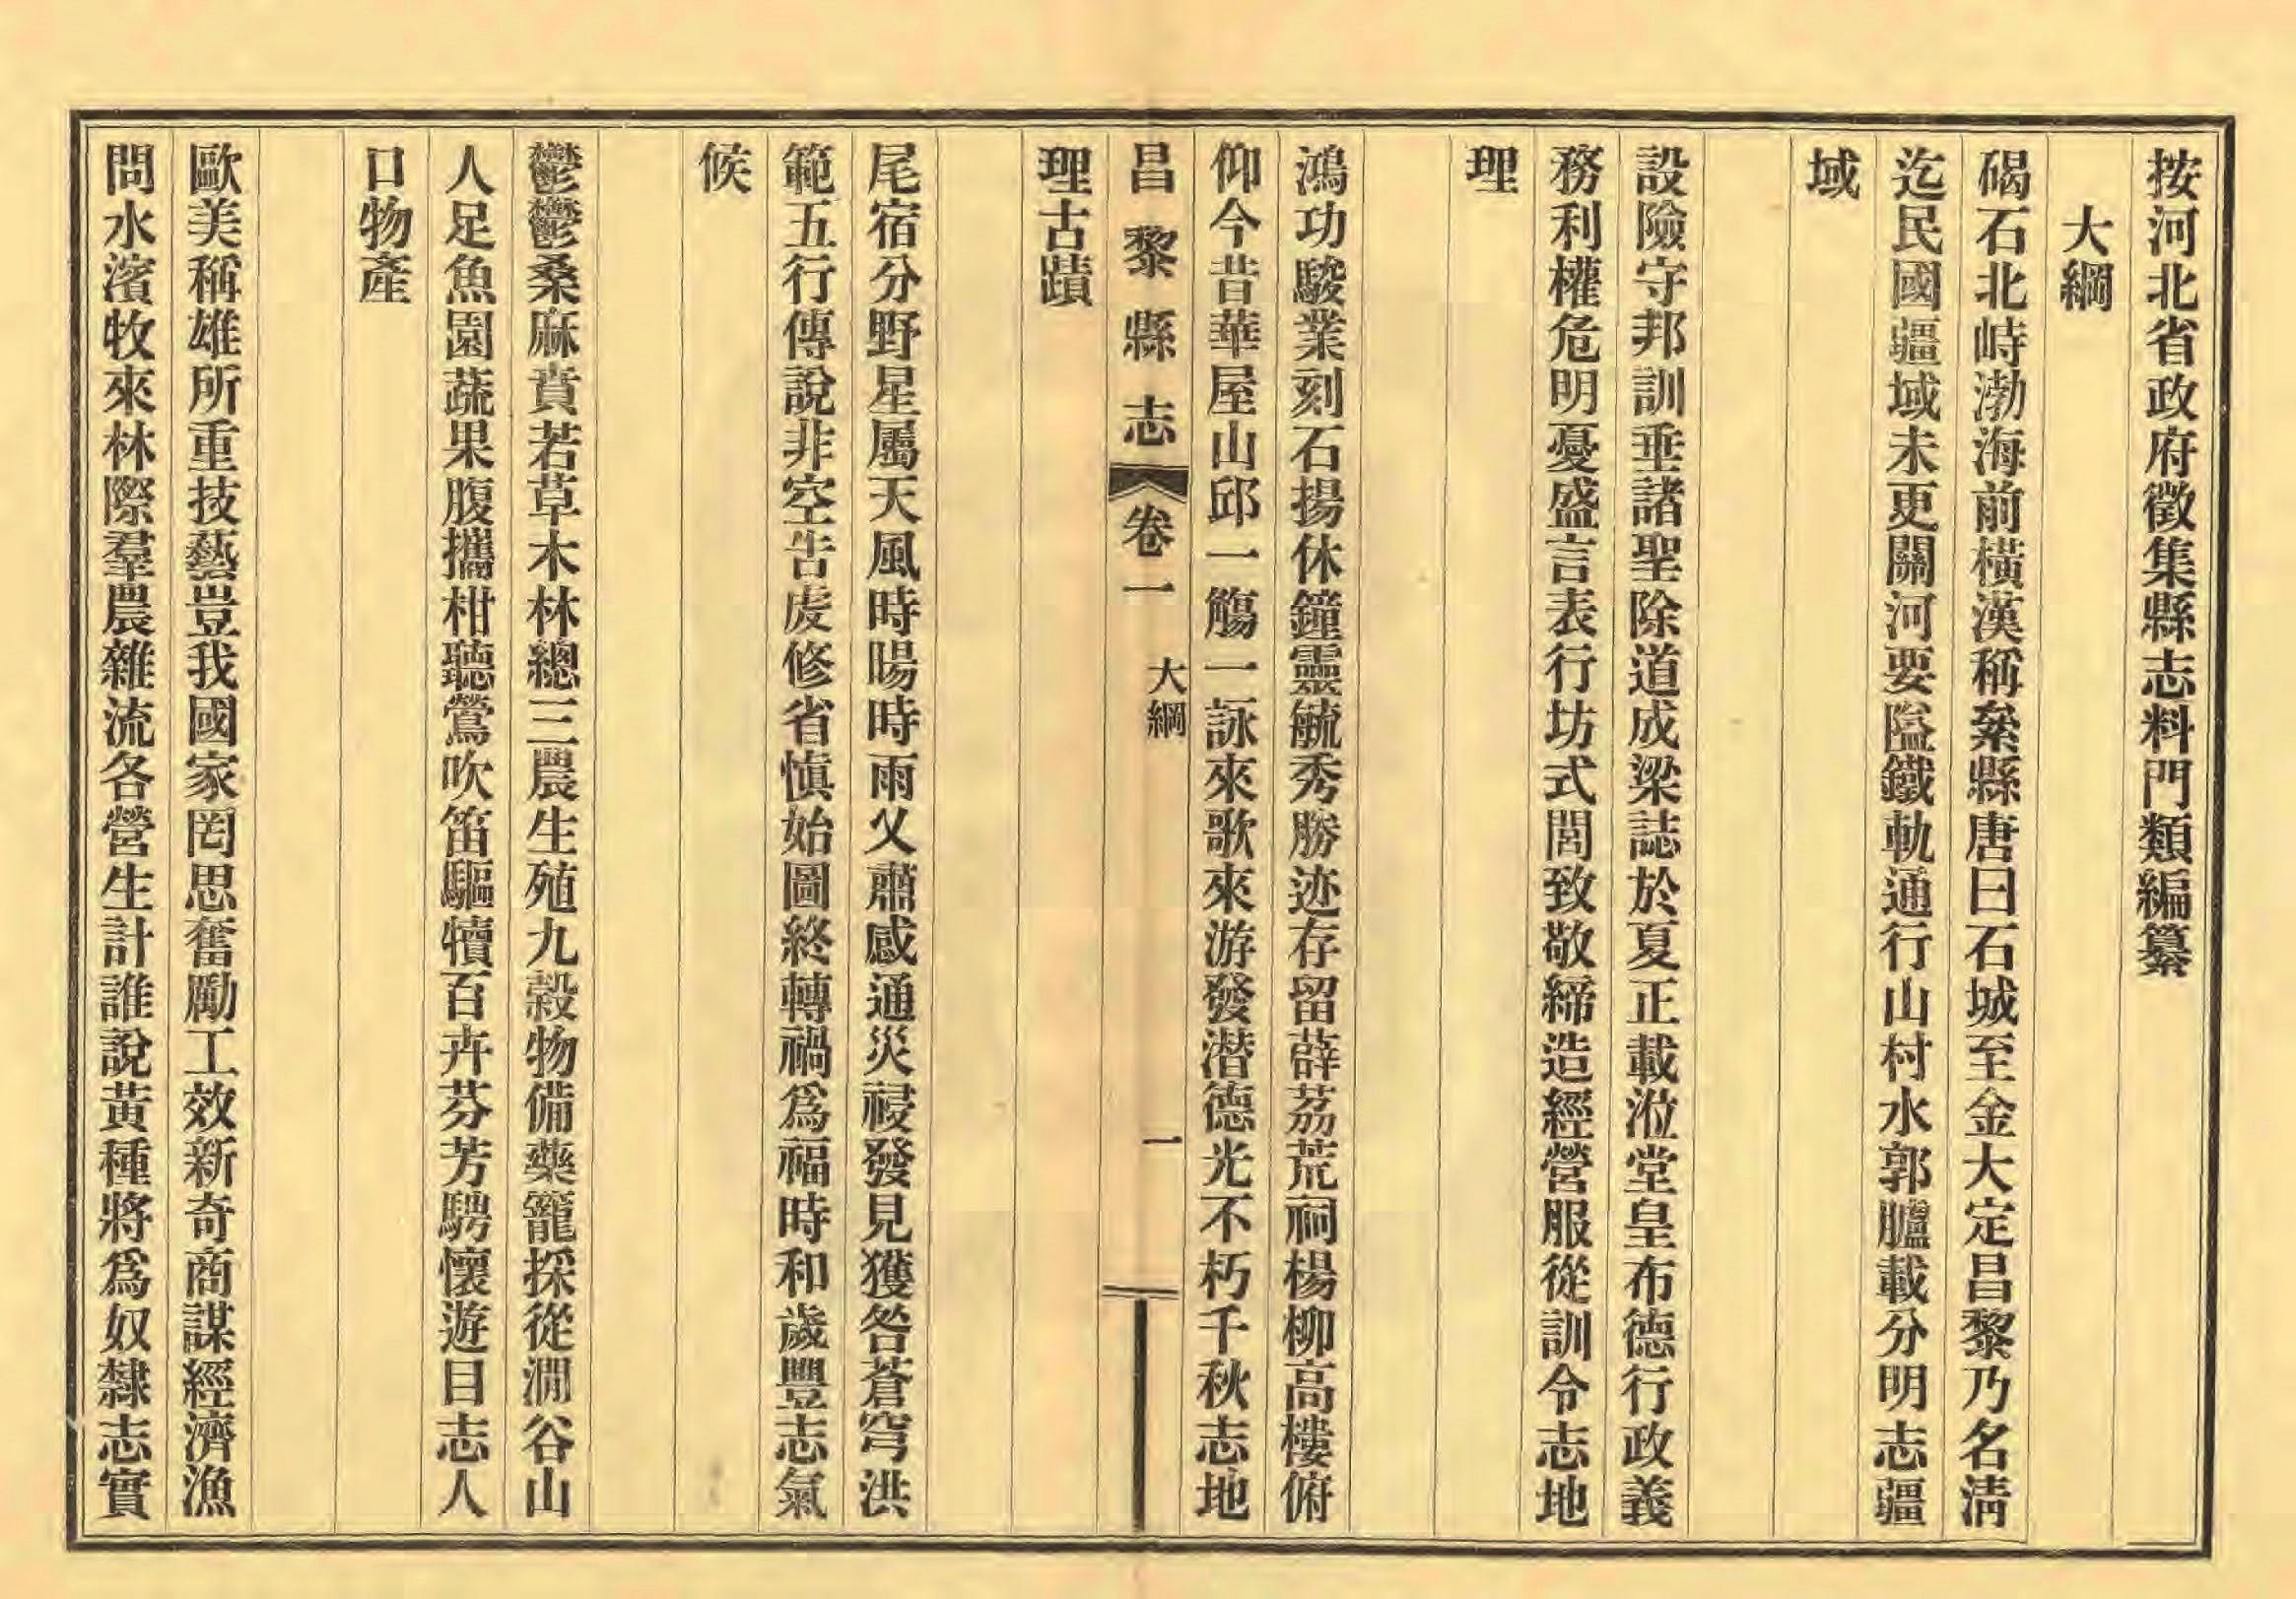 按河北省政府徵集縣志料門類編纂
大綱
碣石北峙渤海前橫漢稱絫縣唐曰石城至金大定昌黎乃名淸
迄民國疆域未更關河要隘鐵軌通行山村水郭臚載分明志疆
域
設險守邦訓垂諸聖除道成梁誌於夏正載涖堂皇布德行政義
務利權危明憂盛言表行坊式閭致敬締造經營服從訓令志地
理
鴻功駿業刻石揚休鐘靈毓秀勝迹存留薜荔荒祠楊柳高樓俯
仰今昔華屋山邱一觴一詠來歌來游發潛德光不朽千秋志地
昌黎縣志 卷一 大綱 一
理古蹟
尾宿分野星屬天風時暘時雨乂肅感通災祲發見獲咎蒼穹洪
範五行傳說非空吿虔修省愼始圖終轉禍爲福時和歲豐志氣
候
鬱鬱桑麻賁若草木林總三農生殖九穀物備藥籠採從澗谷山
人足魚園蔬果腹攜柑聽鶯吹笛驅犢百卉芬芳騁懷遊目志人
口物產
歐美稱雄所重技藝豈我國家罔思奮勵工效新奇商謀經濟漁
問水濱牧來林際羣農雜流各營生計誰說黃種將爲奴隸志實